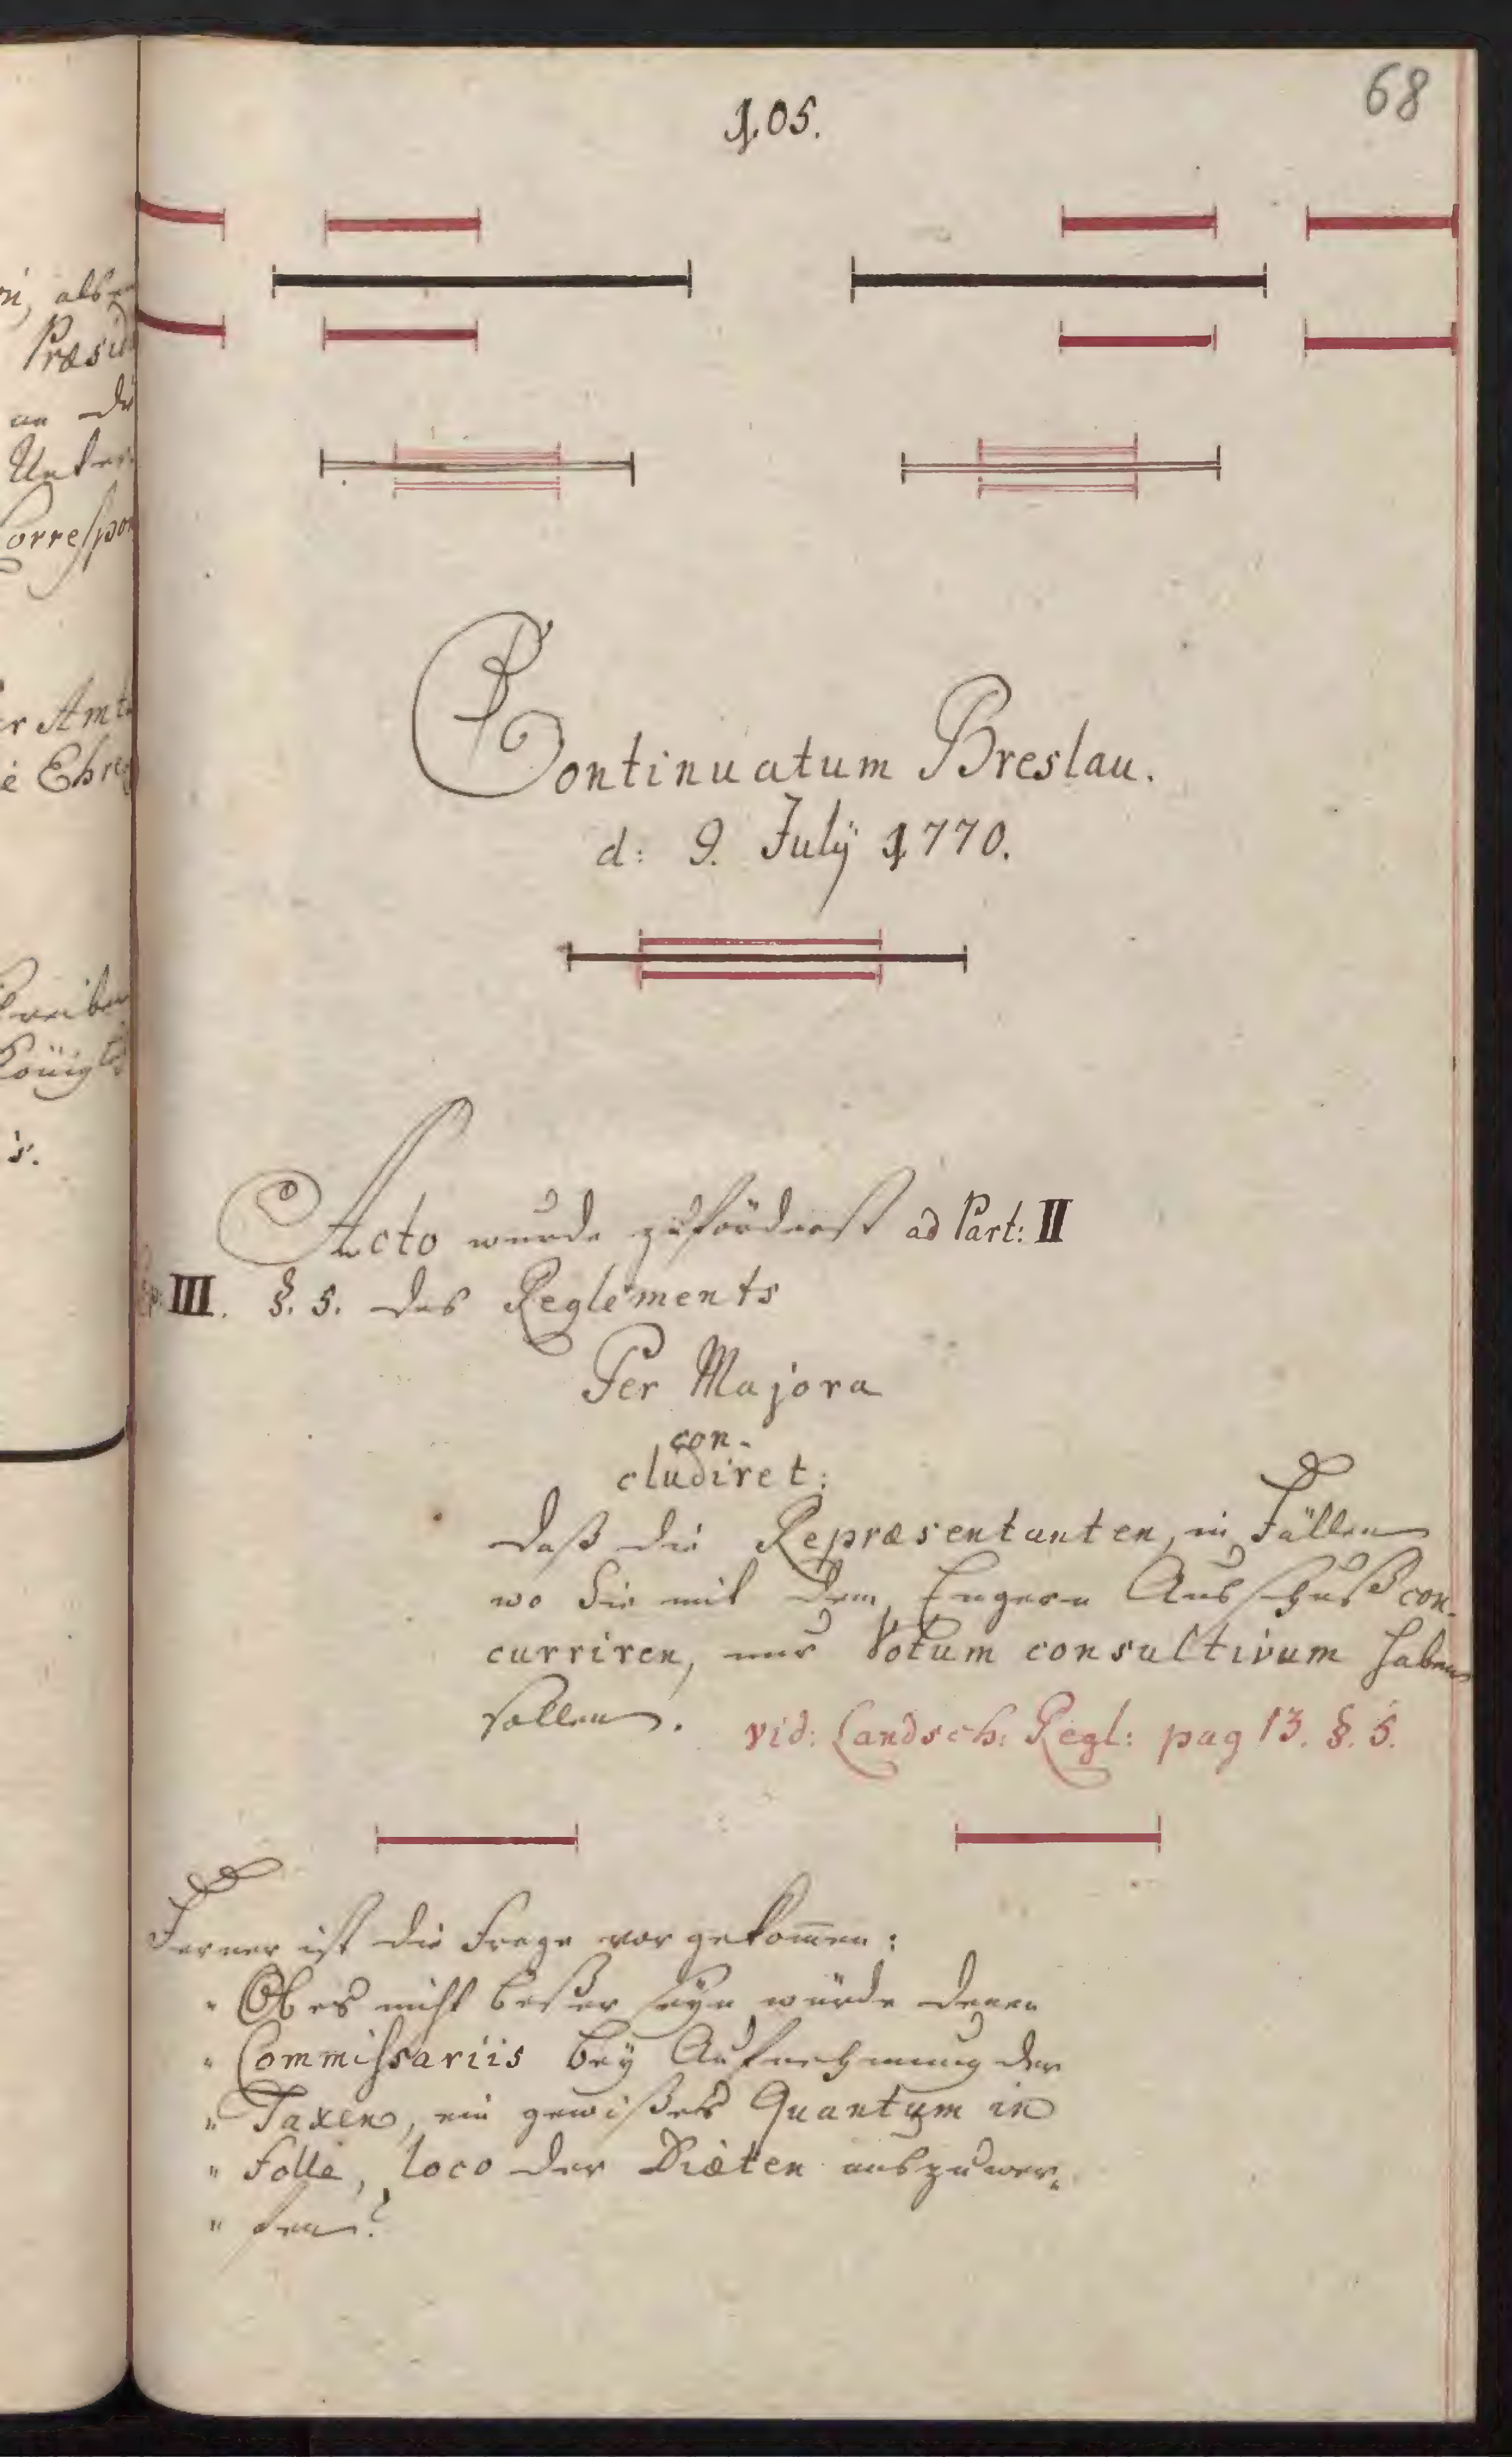 68
105.
Continuatum Breslau.
d: 9. Julÿ 1770.
Acto wurde zuförderst ad Part: II
Cap: III. §. 5. des Reglements
Per Majora
con-
cludiret:
daß die Repræsentanten, in Fällen
wo Sie mit dem Engern Ausschuß con-
curriren, nur Votum consultivum haben
sollen. vid: Landsch: Regl: pag 13. §. 5.
Ferner ist die Frage vorgekom̅en:
" Ob es nicht beßer seÿn würde denen
" Commissariis beÿ Aufnehmung der
" Taxen, ein gewißes Quantum in
" folle, loco der Diæten auszuwer-
" fen?